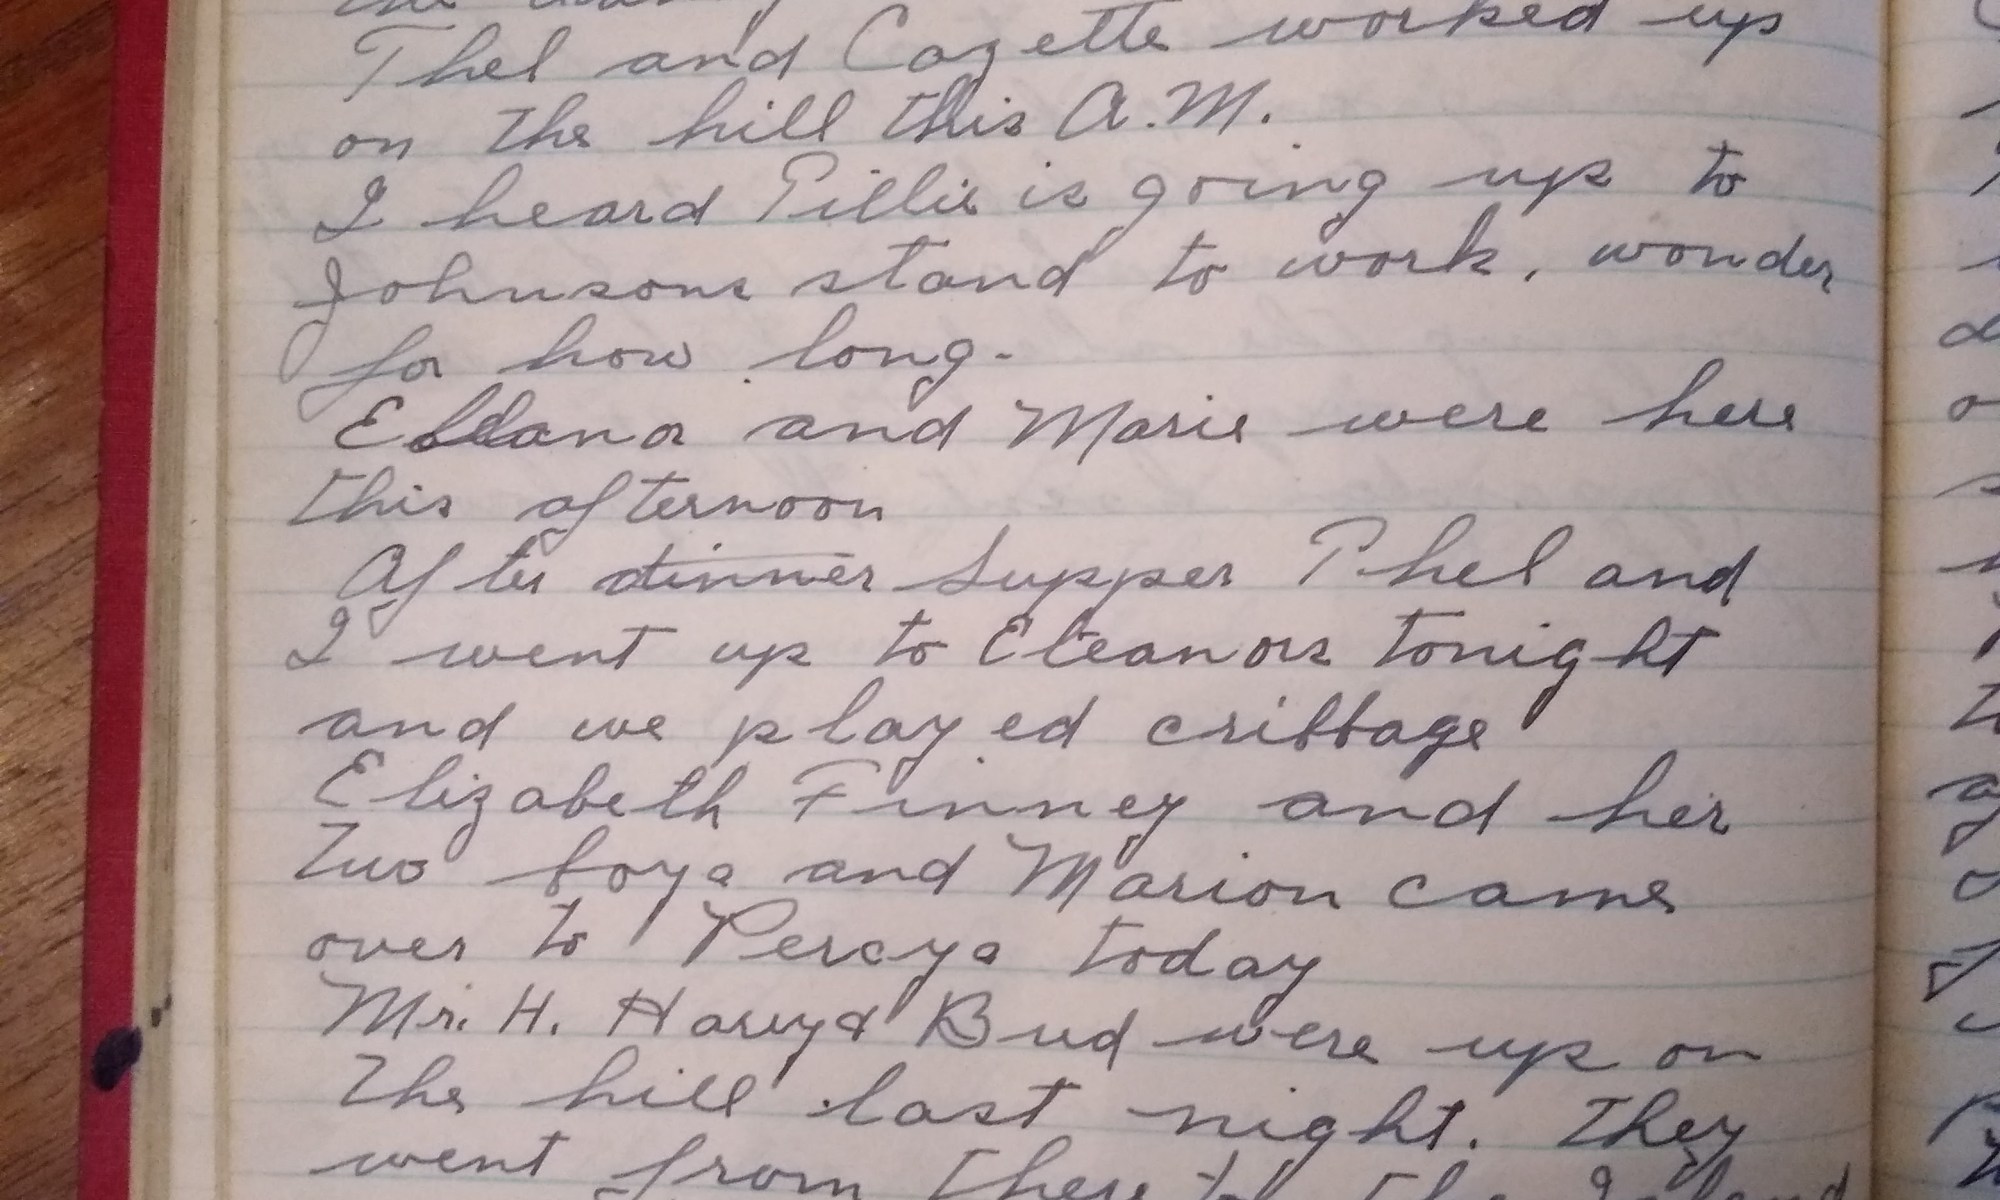 the
Thel and Cozette worked up
on the hill this A.M.
I heard Tillie is going up to
Johnsons stand to work, wonder
for how long.
and Marie were here
this afternoon
After dinner Supper Thel and
I went up to Eleanors tonight
and we played cribbage
Elizabeth Finney and her
two boys and Marion came
over to Percys today
Mr. H. & Bud were up on
the hill last night. They
went from there to the Island